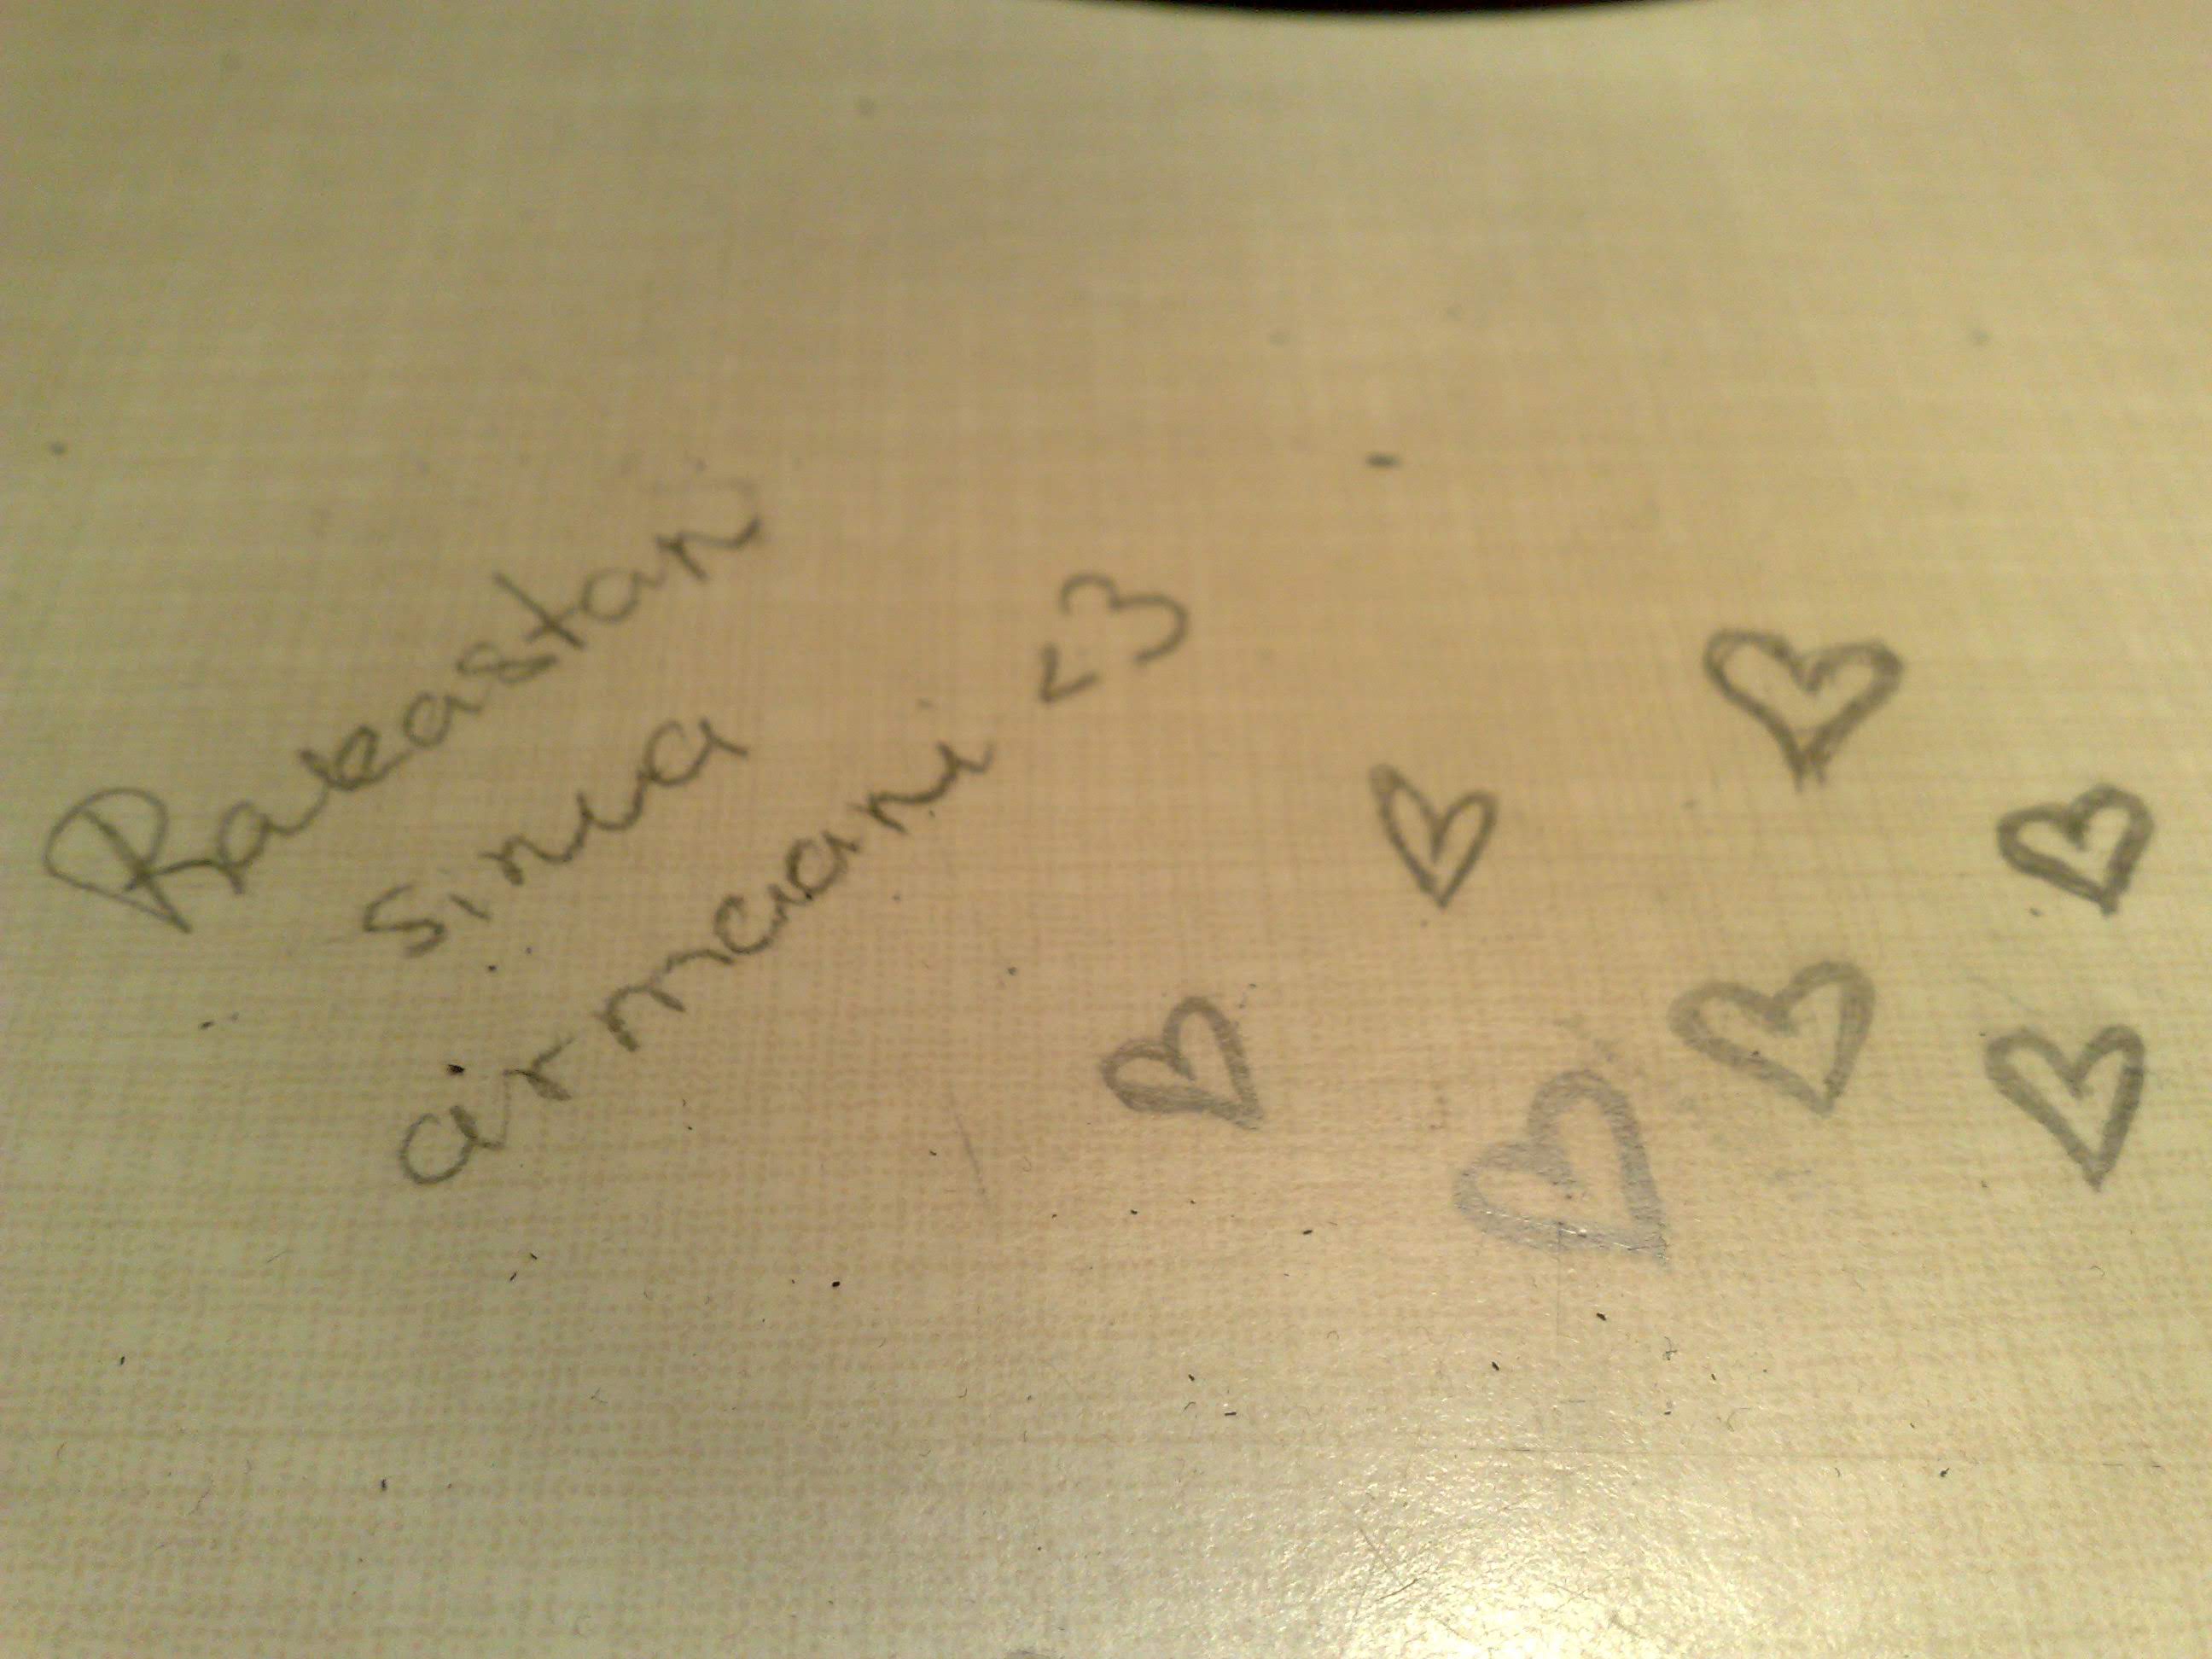 Rakastan
sinua
armaani <3